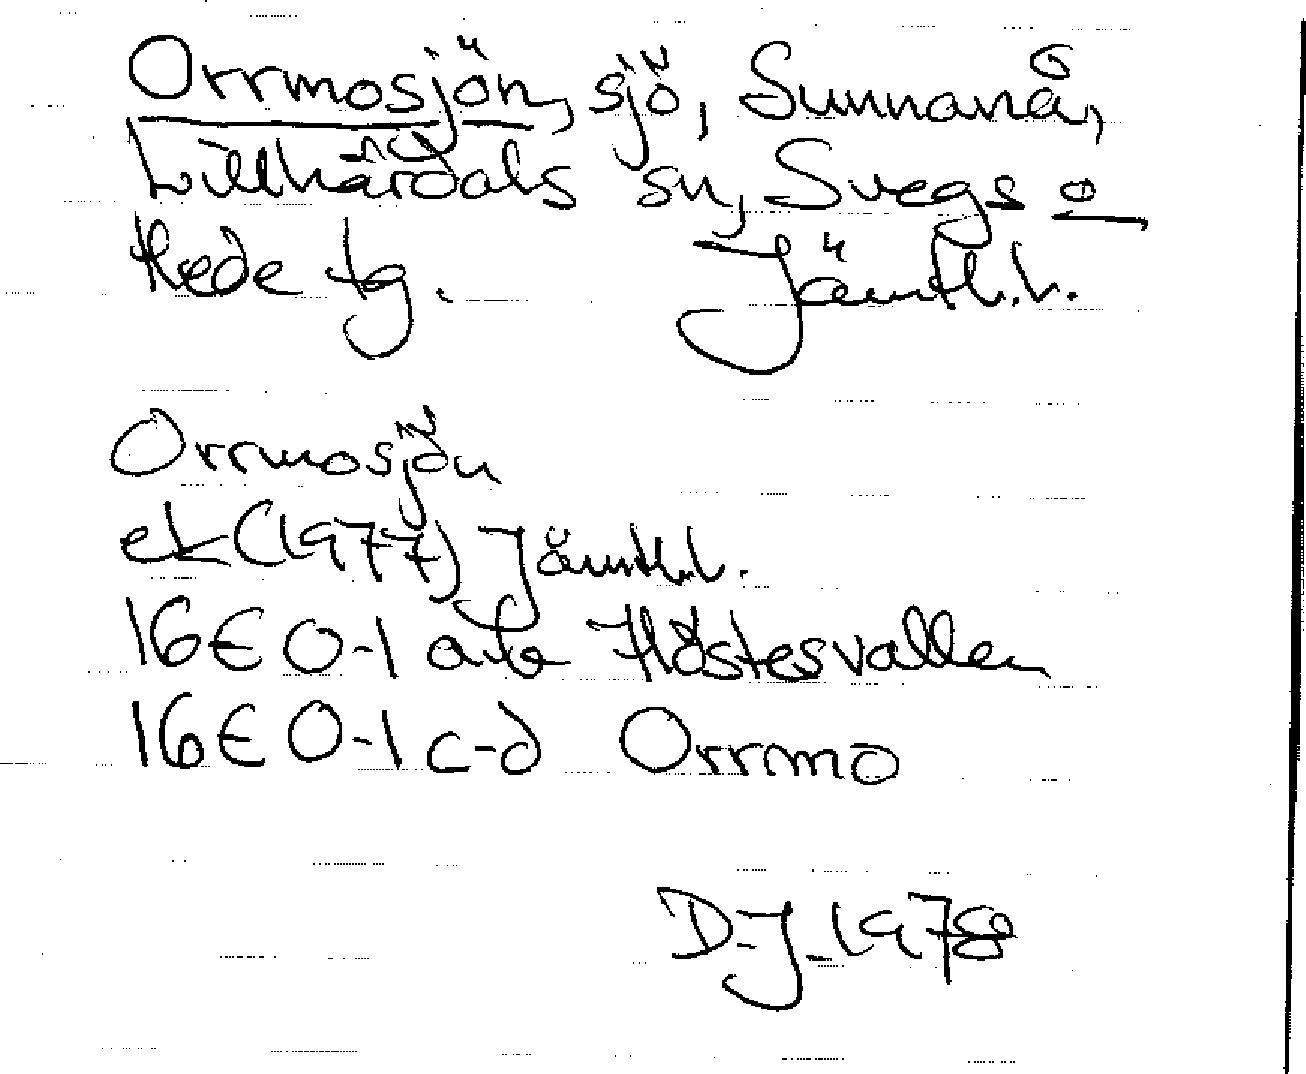 Orrmosjön, sjö, Sunnanå,
Lillhärdals sn, Svegs o
Hede tg. Jämtl.l.
Orrmosjön
ek (1977) Jämtl.l.
16E 0-1 a-b Flöstesvallen
16E 0-1 c-d Orrmo
D-J-1978